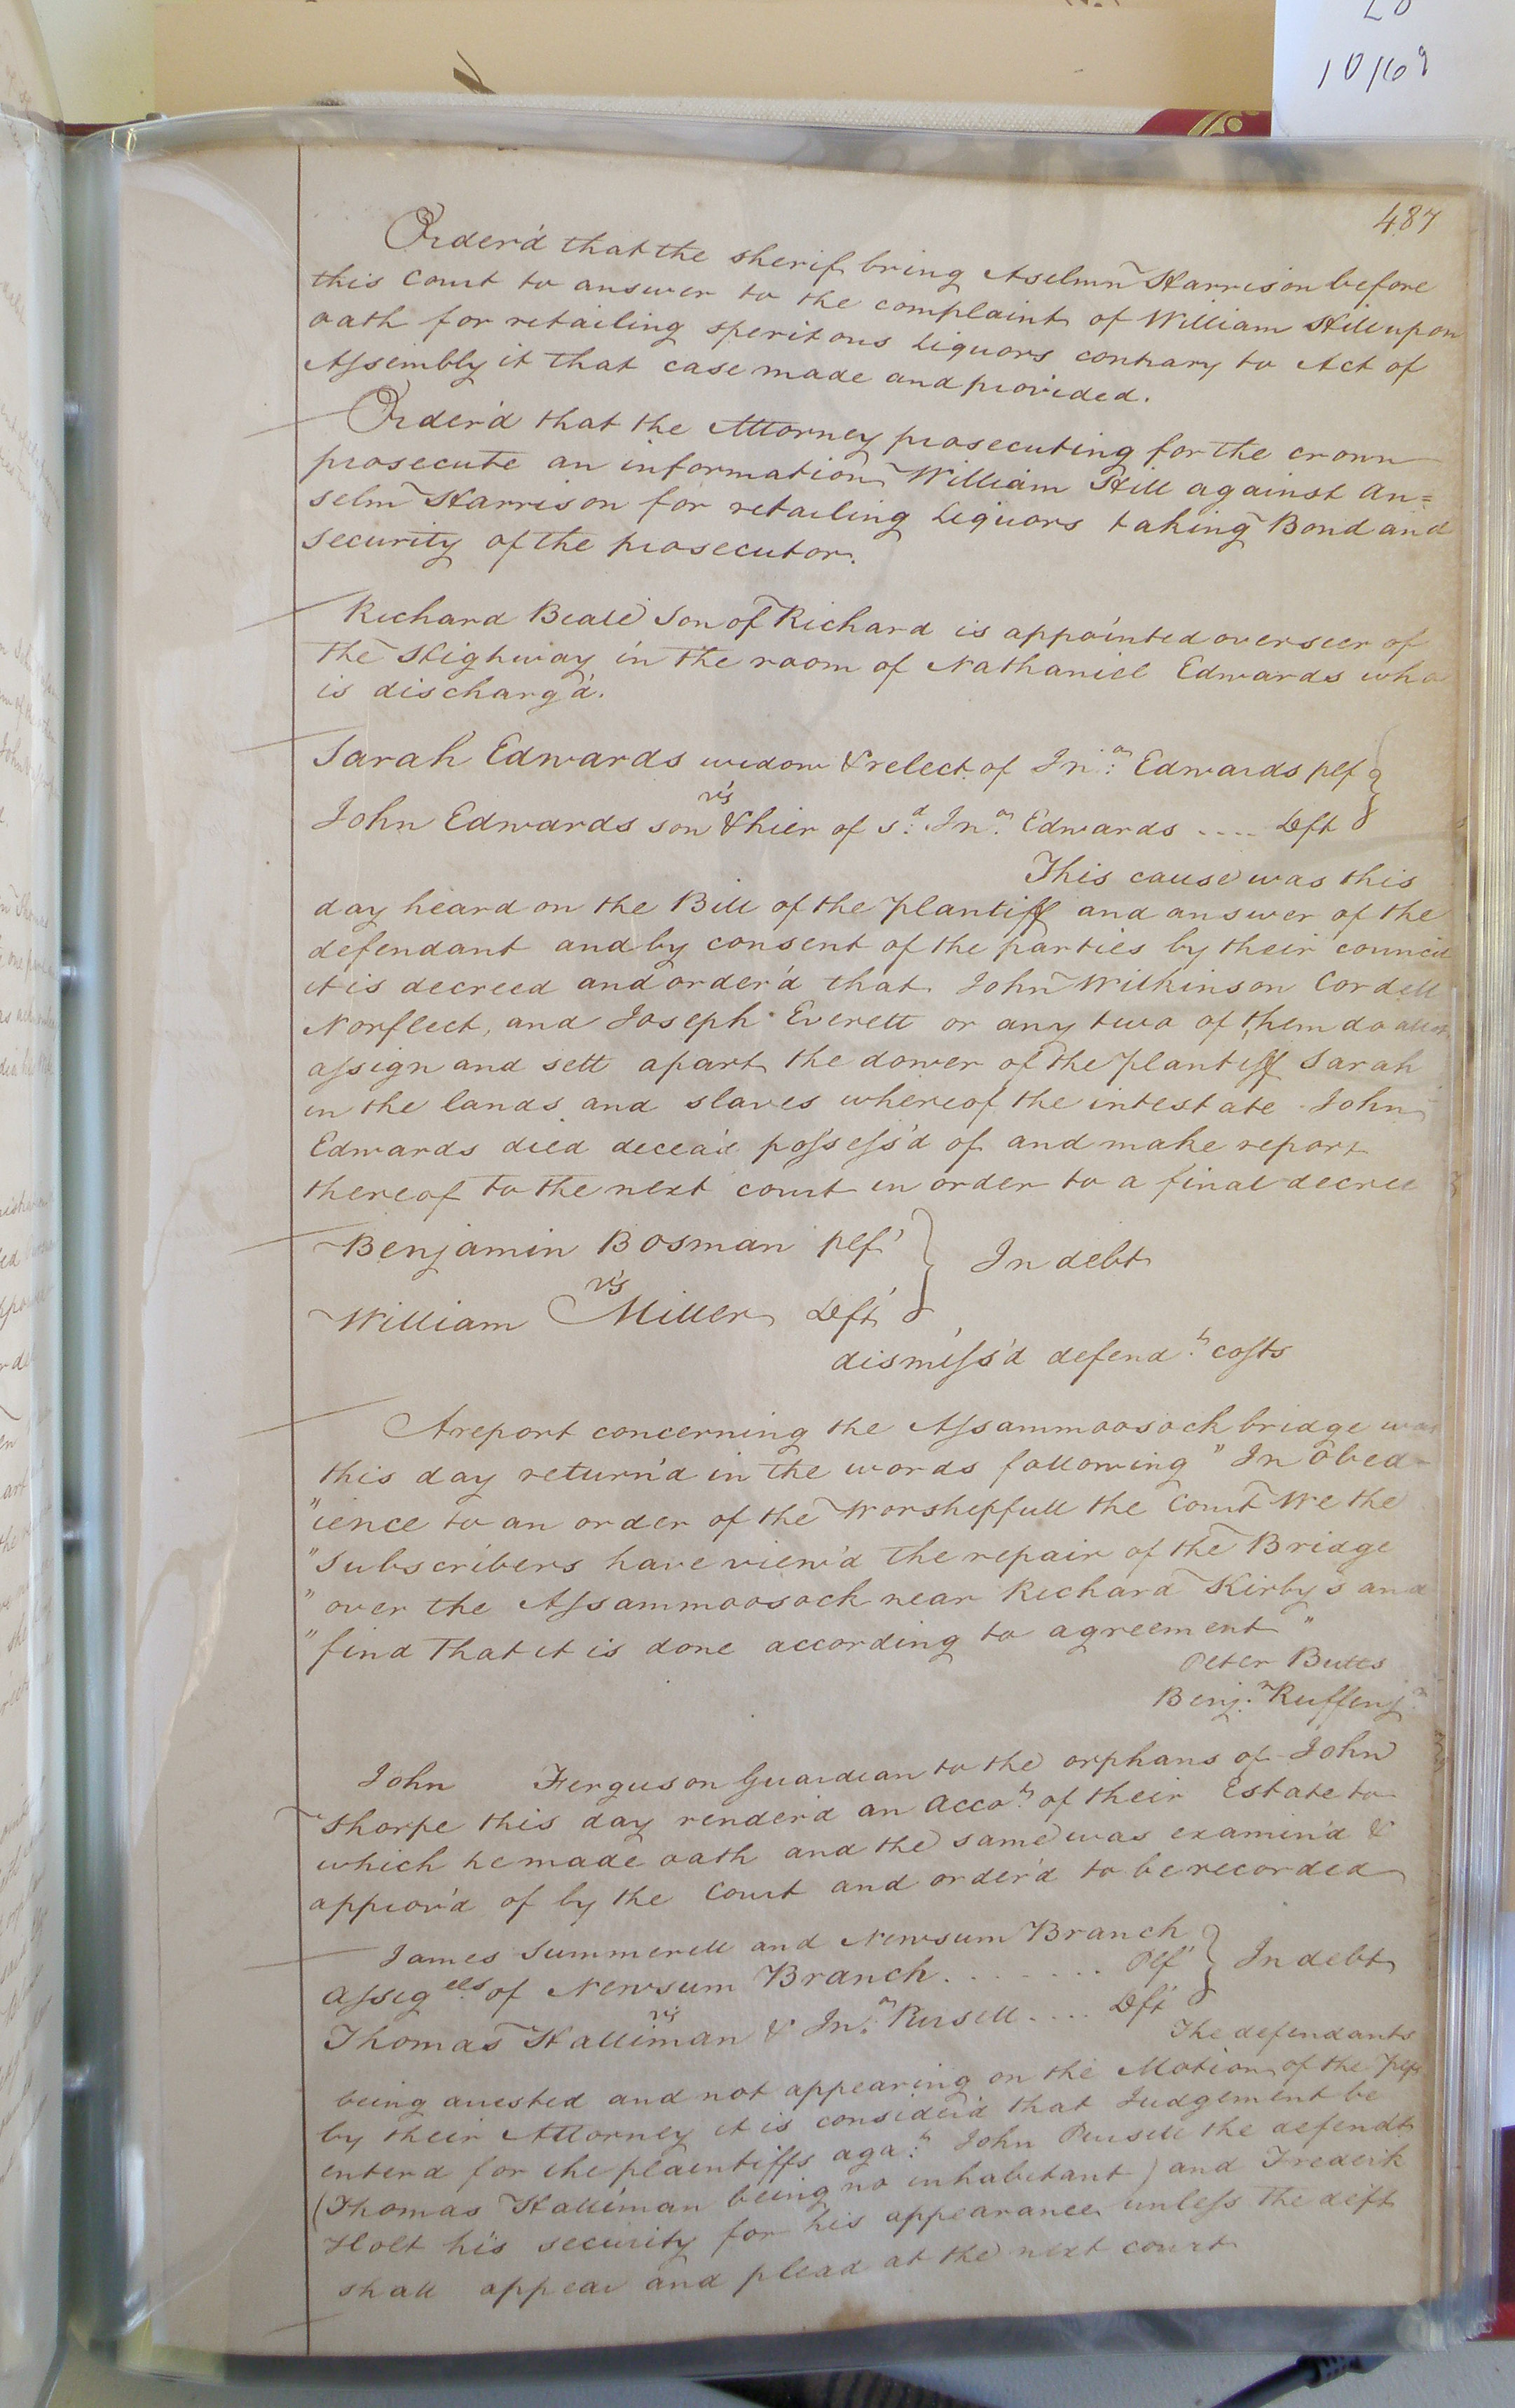 20
10/69
487
Order'd that the sherif bring Aselmn Harrison before
this Court to answer to the complaint of William Hill upon
oath for retailing speritous Liquors contrary to Act of
Assembly it that case made and provided.
Order'd that the Attorney prosecuting for the crown
prosecute an information William Hill against An=
selm Harrison for retailing Liquors taking Bond and
Security of the prosecutor.
Richard Beale Son of Richard is appointed overseer of
the Highway in the room of Nathaniel Edwards who
is discharg'd.
Sarah Edwards widow & relect of Jno. Edwards plf
vs
John Edwards son & hier of sd. Jno. Edwards .... Deft
This cause was this
day heard on the Bill of the plantiff and answer of the
defendant and by consent of the parties by their council
it is decreed and order'd that John Wilkinson Cordell
Norfleet, and Joseph Everett or any two of them do allot
assign and sett apart the dower of the plantiff Sarah
in the lands and slaves whereof the intestate John
Edwards died possess'd of and make report
thereof to the next court in order to a final decree
Benjamin Bosman plf } In debt
vs
William Miller Deft
dismiss'd defendts costs
A report concerning the Assammoosock bridge was
this day return'd in the words following "In obed-
"ience to an order of the Worshepfull the Court We the
"Subscribers have view'd the repair of the Bridge
"over the Assammoosock near Richard Kirby's and
"find that it is done according to agreement"
Peter Butts
Benj.n Ruffen jr
John Ferguson Guardian to the orphans of John
Thorpe this day render'd an accots of their Estate to
which he made oath and the same was examin'd &
approv'd of by the Court and order'd to be recorded
James Summerell and Newsum Branch
assigees of Newsum Branch ....... Plf } In debt
vs
Thomas Halliman & Jno. Pursell .... Deft
The defendants
being arrested and not appearing on the Motion of the Plfs
by their Attorney it is consider'd that Judgement be
enterd for the plaintiffs agat. John Pursell the defendt
(Thomas Halliman being no inhabitant) and Frederik
Holt his security for his appearance unless the deft
shall appear and plead at the next court